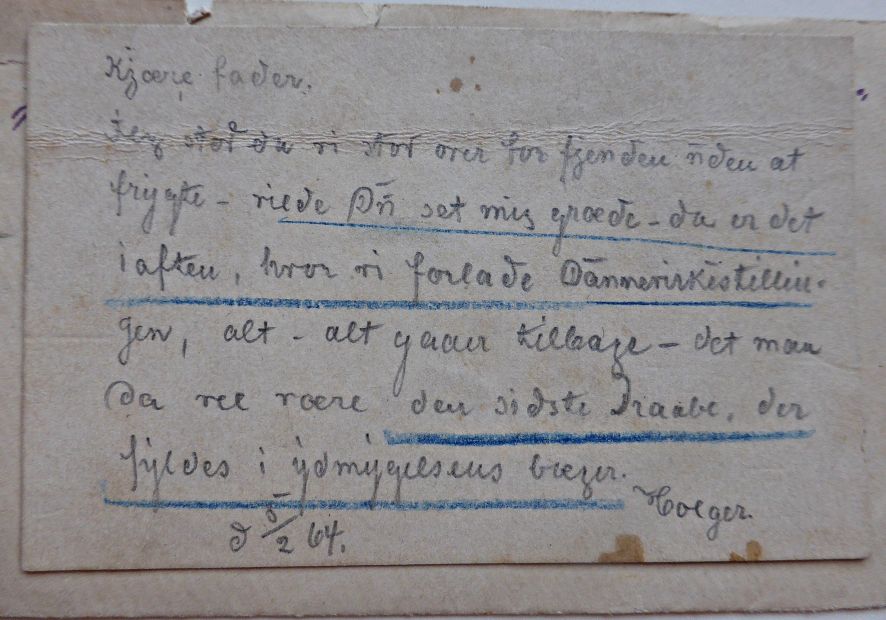 Kjære fader.
Jeg stod da vi stod over for fjenden uden at
frygte - vilde Du set mig græde - da er det
iaften, hvor vi forlade Dannevirkestillin-
gen, alt - alt gaaer tilbage - det maa
da vel være den sidste Draabe, der
fyldes i ydmygelsens bæger.
Holger.
d 5/2 64.